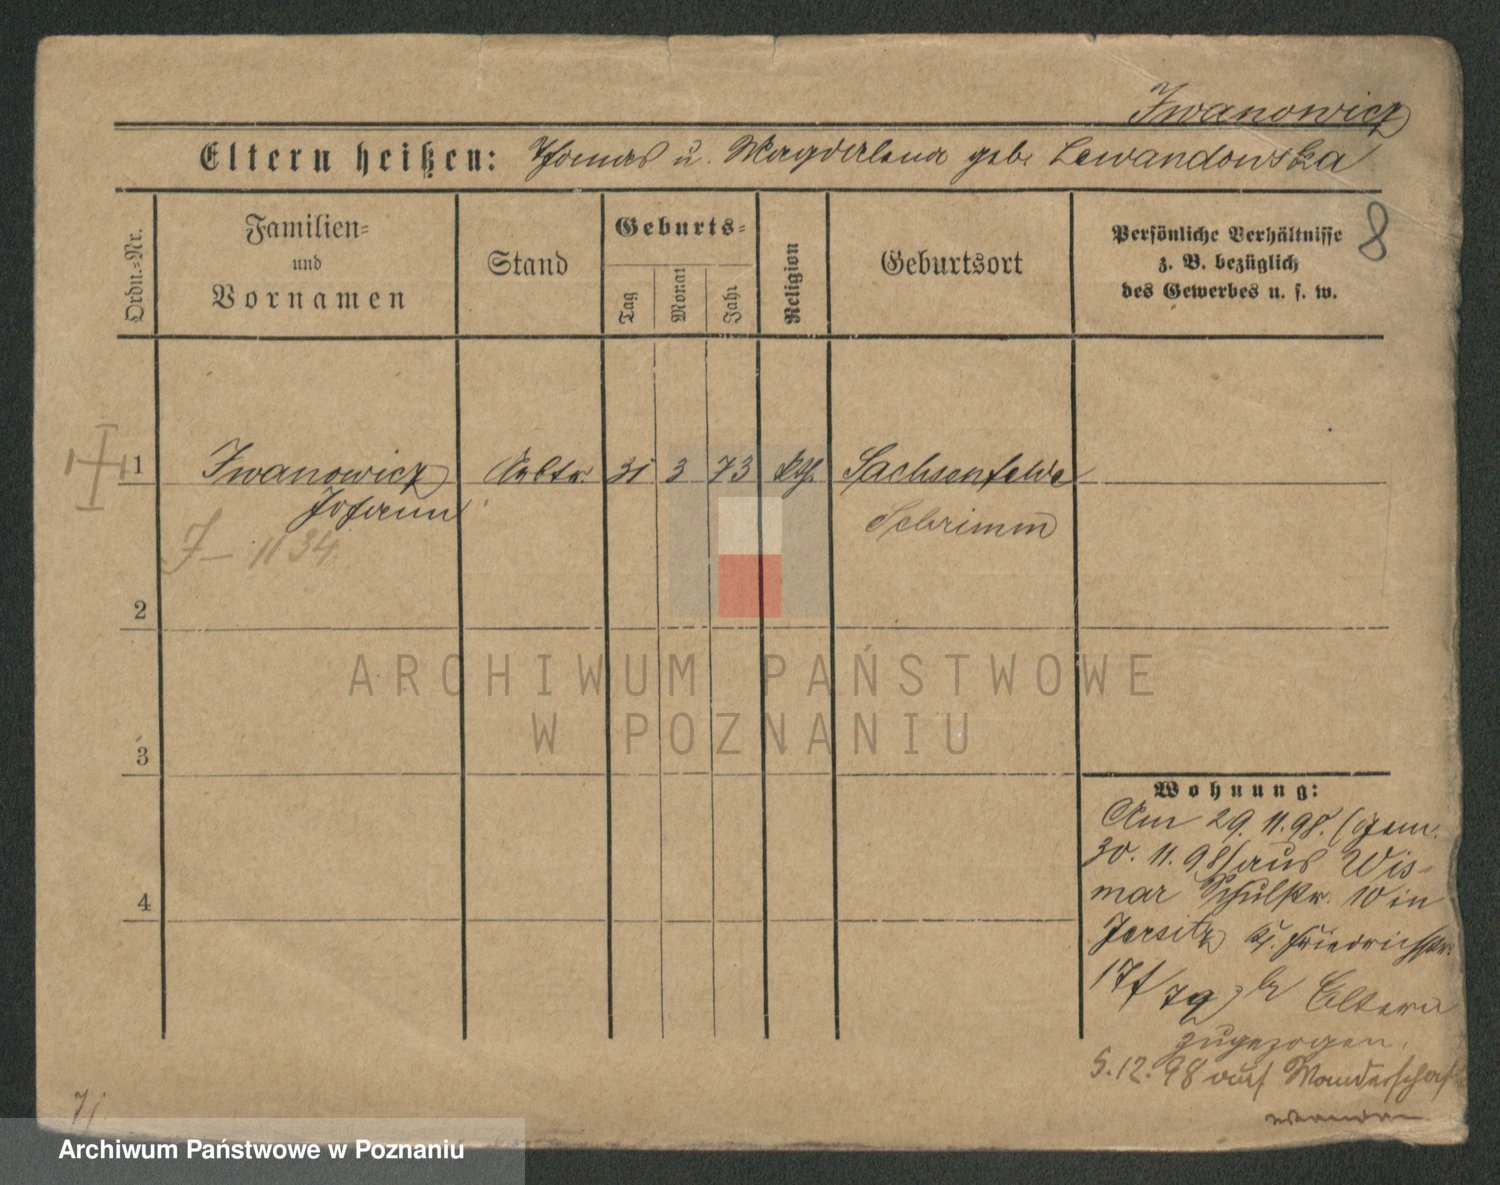 Iwanowicz
Eltern heißen: Thomas u. Magdalena geb. Lewandowska
8
Ordn.-Nr.
Familien-
und
Vornamen
Stand
Geburts-
Tag
Monat
Jahr
Religion
Geburtsort
Persönliche Verhältnisse
z. B. bezüglich
des Gewerbes u. s. w.
1 Iwanowicz Arbtr. 31 3 73 kth. Sachsenfelde
Johann Schrimm
J- 1134
2
ARCHIWUM PAŃSTWOWE
W POZNANIU
3
Wohnung:
Am 29.11.98. (gem.
30.11.98) aus Wis-
mar Schulstr. 10 in
Jersitz Kl. Friedrichstr.
Eltern
zugezogen.
5.12.98 auf Wanderschaft
4
Archiwum Państwowe w Poznaniu